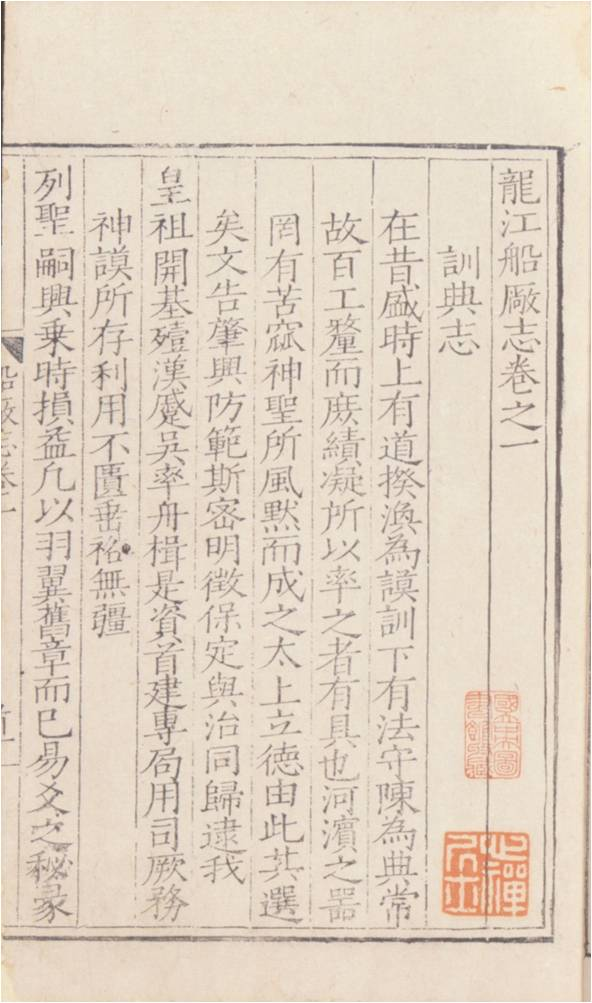 龍江船廠志卷之一
訓典志
在昔盛時上有道揆渙為謨訓下有法守陳為典常
故百工釐而庶績凝所以率之者有具也河濵之器
罔有苦窳神聖所風黙而成之太上立德由此其選
矣文告肇興防範斯宻明徴保定與治同歸逮我
皇祖開基殪漢蹙吳率舟楫是資首建專局用司厥務
神謨所存利用不匱垂裕無疆
列聖嗣興乗時損益凢以羽翼舊章而已易爻之秘彖
船廠志卷一
國立中央圖書館收藏